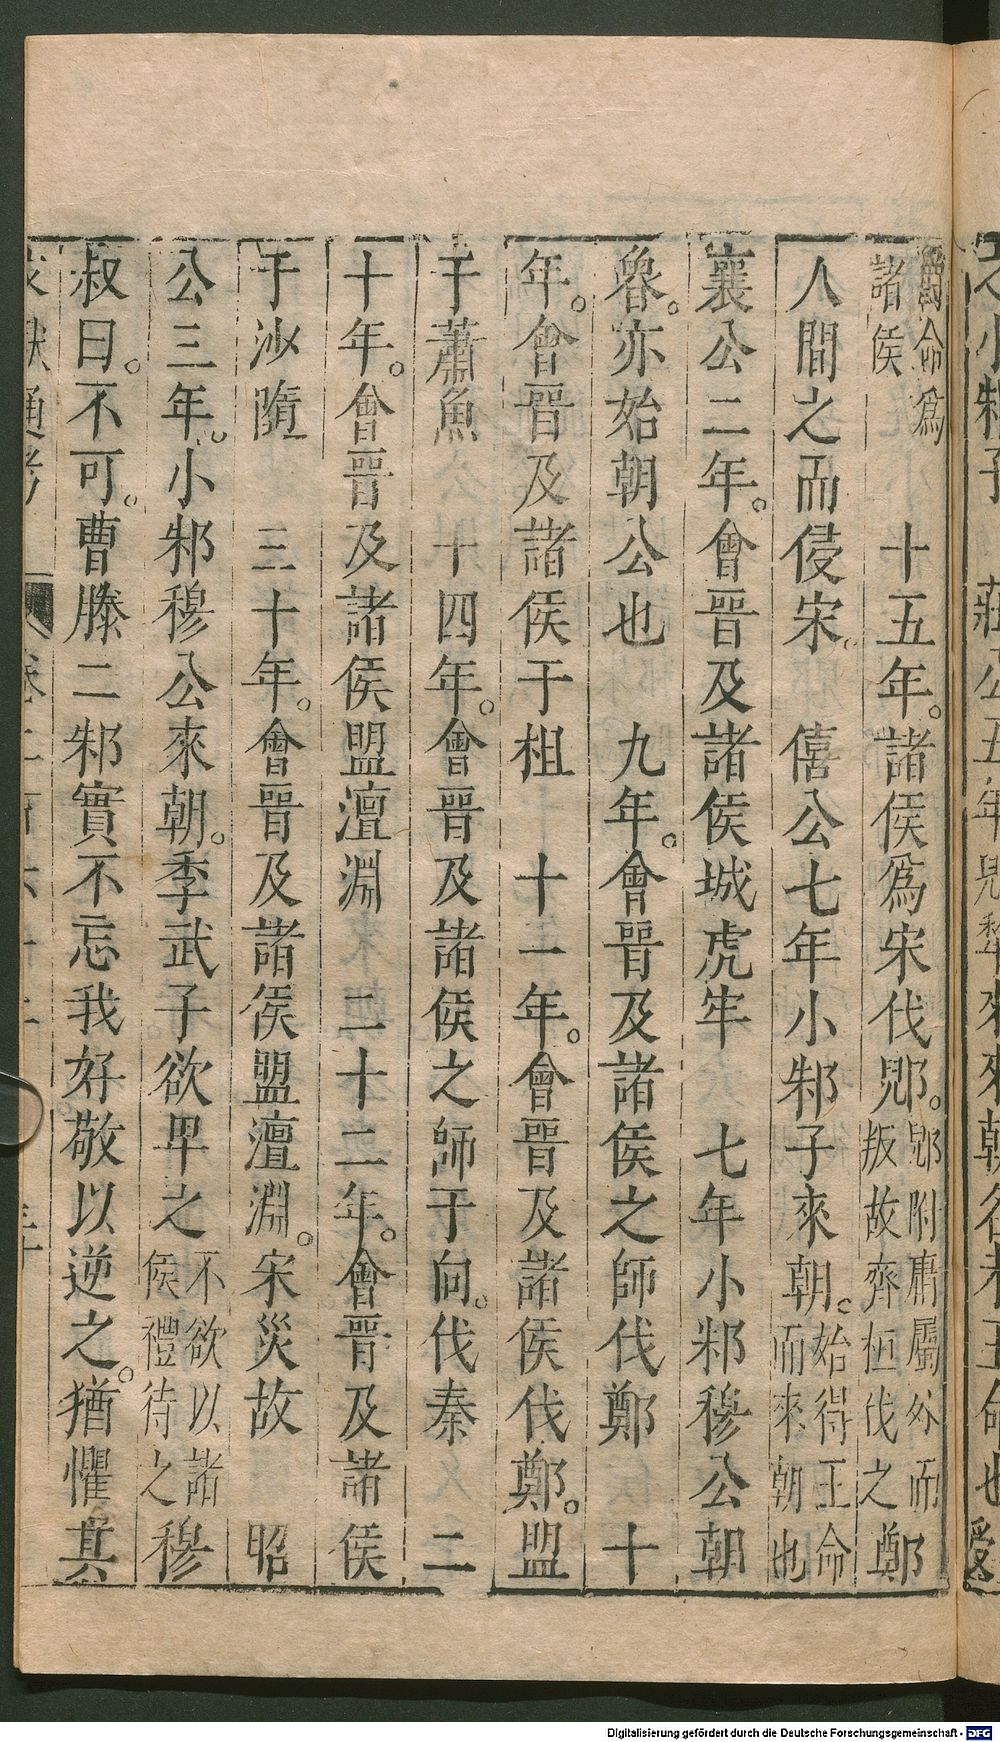 之小邾子 莊公五年郳犂來來朝名未王命也受
爵命爲諸侯 十五年。諸侯爲宋伐郳。郳附庸屬宋而叛故齊桓伐之鄭
人間之而侵宋。 僖公七年小邾子來朝。始得王命而來朝也
襄公二年。會晉及諸侯城虎牢 七年小邾穆公朝
魯。亦始朝公也 九年。會晉及諸侯之師伐鄭 十
年。會晉及諸侯于柤 十一年。會晉及諸侯伐鄭。盟
于蕭魚 十四年。會晉及諸侯之師于向。伐秦 二
十年。會晉及諸侯盟澶淵 二十二年。會晉及諸侯
于沙隨 三十年。會晉及諸侯盟澶淵。宋災故 昭
公三年。小邾穆公來朝。季武子欲卑之不欲以諸侯禮待之穆
叔曰。不可。曹滕二邾實不忘我好敬以逆之。猶懼其
文獻通考 卷二百六十二
Digitalisierung gefördert durch die Deutsche Forschungsgemeinschaft - DFG